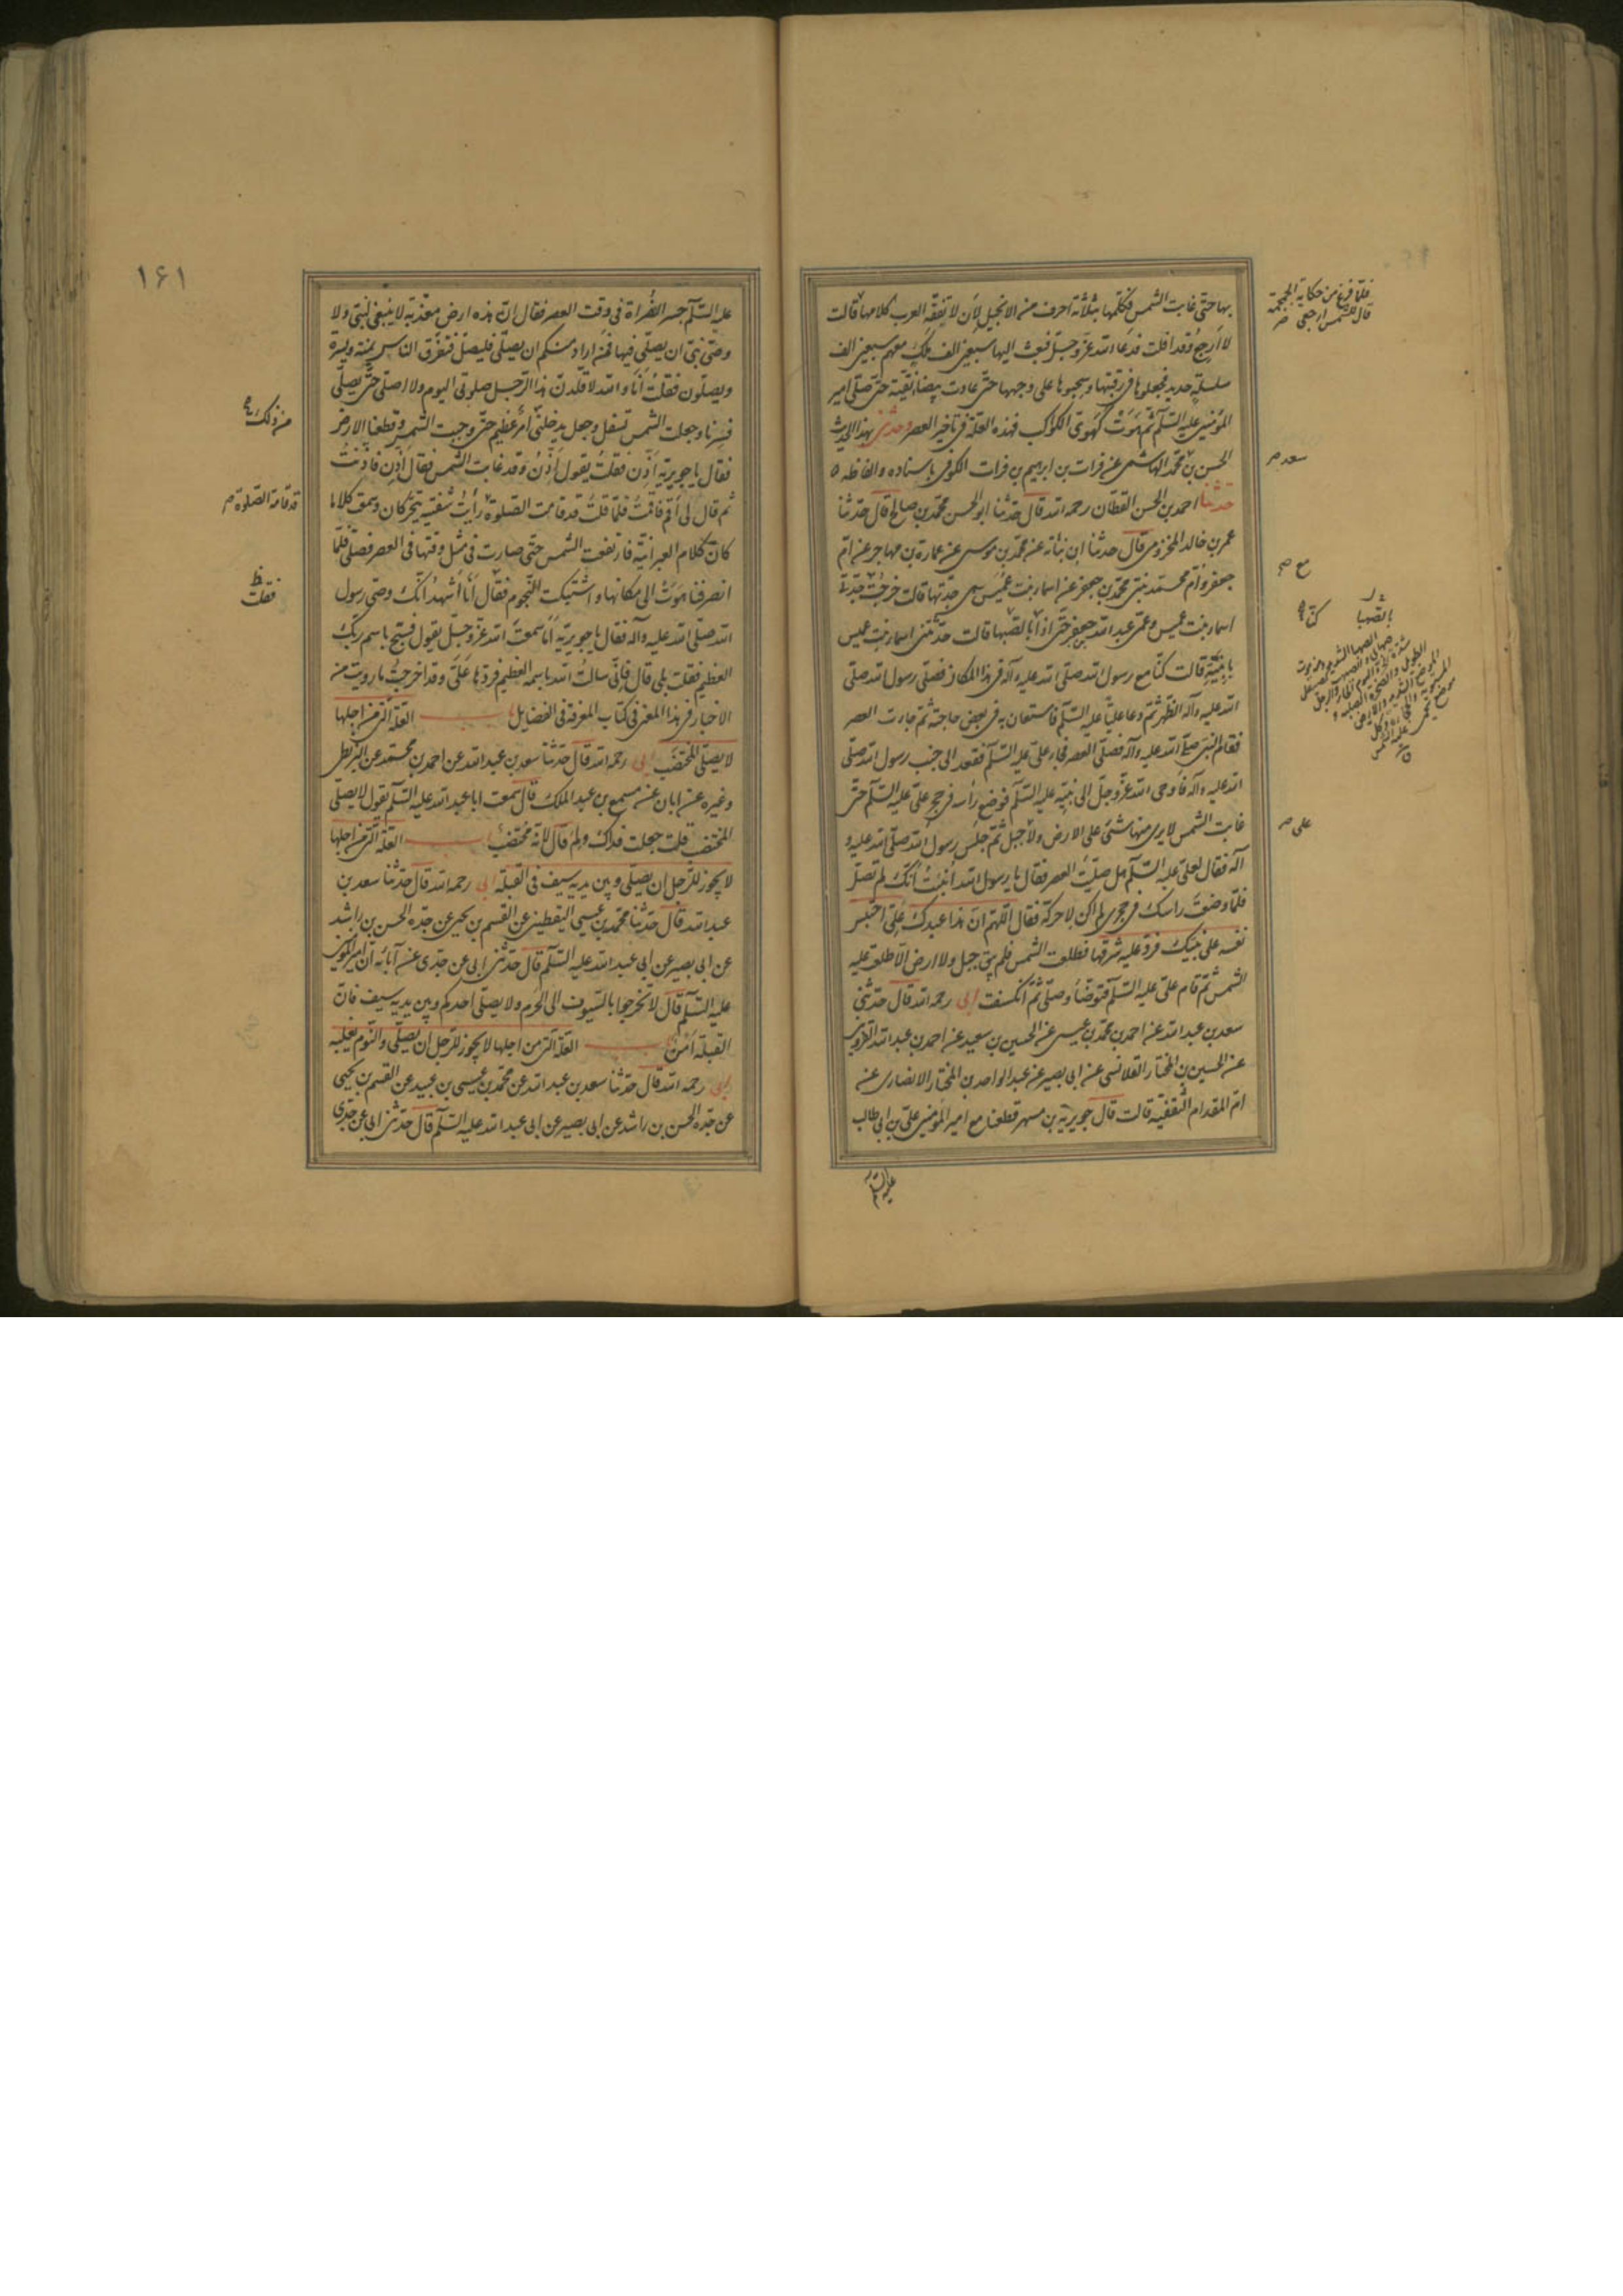 بها حتى غابت الشمس فكلمها بثلاثة احرف من الانجيل لأن لا تفقه العرب كلامها قالت
لا ارجع وقد افلت فدعا الله عز وجل فبعث اليها سبعين الف ملك معهم سبعين الف
سلسلة حديد فجعلوها في رقبتها وسحبوها على وجهها حتى عادت بيضا نقية حتى صلى امير
المؤمنين عليه السلام ثم هوت كهوى الكوكب فهذه العلة في تاخير العصر وحدثنى بهذا الحديث
الحسن بن محمد الهاشمى عن فرات بن ابرهيم بن فرات الكوفى باسناده والفاظه
حدثنا احمد بن الحسن القطان رحمه الله قال حدثنا ابو الحسن محمد بن صالح قال حدثنا
عمر بن خالد المخزومى قال حدثنا ابن نباته عن محمد بن موسى عن عمارة بن مهاجر عن ام
جعفر وام محمد بنتى محمد بن جعفر عن اسماء بنت عميس وهى جدتها قالت خرجت مع جدتى
اسماء بنت عميس وعمى عبد الله بن جعفر حتى اذا بالصهبا قالت حدثتنى اسماء بنت عميس
يا بنية قالت كنا مع رسول الله صلى الله عليه وآله في هذا المكان فصلى رسول الله صلى
الله عليه وآله الظهر ثم دعا عليا عليه السلام فاستعان به في بعض حاجته ثم جاءت العصر
فقام النبى صلى الله عليه وآله فصلى العصر فجاء على عليه السلام فقعد الى جنب رسول الله صلى
الله عليه وآله فاوحى الله عز وجل الى نبيه عليه السلام فوضع رأسه في حجر على عليه السلام حتى
غابت الشمس لا يرى منها شئ على الارض ولا جبل ثم جلس رسول الله صلى الله عليه و
آله فقال لعلى عليه السلام هل صليت العصر فقال يا رسول الله انبئت انك لم تصل
فلما وضعت راسك في حجرى لم اكن لاحركه فقال اللهم ان هذا عبدك على احتبس
نفسه على نبيك فرد عليه شرقها فطلعت الشمس فلم يبق جبل ولا ارض الا طلعت عليه
الشمس ثم قام على عليه السلام فتوضأ وصلى ثم انكسفت ابى رحمه الله قال حدثنى
سعد بن عبد الله عن احمد بن محمد بن عيسى عن الحسين بن سعيد عن احمد بن عبد الله القروى
عن الحسين بن المختار القلانسى عن ابى بصير عن عبد الواحد بن المختار الانصارى عن
ام المقدام الثقفية قالت قال جويرية بن مسهر قطعنا مع امير المؤمنين على بن ابى طالب
عليه السلام
فلما فرغ من حكاية الجمجمة
قال للشمس ارجعى
سعد
مع
بالصهبا
على
١٤١
عليه السلام جسر الفراة في وقت العصر فقال ان هذه ارض معذبة لا ينبغى لنبى ولا
وصى نبى ان يصلى فيها فمن اراد منكم ان يصلى فليصل فتفرق الناس يمنة ويسرة
ويصلون فقلت انا والله لاقلدن هذا الرجل صلوتى اليوم ولا اصلى حتى يصلى
فسرنا وجعلت الشمس تسفل وجعل يدخلنى امر عظيم حتى وجبت الشمس وقطعنا الارض
فقال يا جويرية اذن فقلت يقول اذن وقد غابت الشمس فقال اذن فاذنت
ثم قال لى اقم فاقمت فلما قلت قد قامت الصلوة رأيت شفتيه يتحركان وسمعت كلاما
كان كلام العبرانية فارتفعت الشمس حتى صارت في مثل وقتها في العصر فصلى فلما
انصرفنا هوت الى مكانها واشتبكت النجوم فقال انا اشهد انك وصى رسول
الله صلى الله عليه وآله فقال يا جويرية اما سمعت الله عز وجل يقول فسبح باسم ربك
العظيم فقلت بلى قال فانى سالت الله باسمه العظيم فردها على وقد اخرجت ما رويت من
الاخبار في هذا المعنى في كتاب المعرفة في الفضايل باب العلة التى من اجلها
لا يصلى المختضب ابى رحمه الله قال حدثنا سعد بن عبد الله عن احمد بن محمد عن البزنطى
وغيره عن ابان عن مسمع بن عبد الملك قال سمعت ابا عبد الله عليه السلام يقول لا يصلى
المختضب قلت جعلت فداك ولم قال لانه مختضب باب العلة التى من اجلها
لا يجوز للرجل ان يصلى وبين يديه سيف في القبلة ابى رحمه الله قال حدثنا سعد بن
عبد الله قال حدثنا محمد بن عيسى اليقطينى عن القسم بن يحيى عن جده الحسن بن راشد
عن ابى بصير عن ابى عبد الله عليه السلام قال حدثنى ابى عن جدى عن آبائه ان امير المؤمنين
عليه السلام قال لا تخرجوا بالسيوف الى الحرم ولا يصلى احدكم وبين يديه سيف فان
القبلة امن باب العلة التى من اجلها لا يجوز للرجل ان يصلى والنوم يغلبه
ابى رحمه الله قال حدثنا سعد بن عبد الله عن محمد بن عيسى بن عبيد عن القسم بن يحيى
عن جده الحسن بن راشد عن ابى بصير عن ابى عبد الله عليه السلام قال حدثنى ابى عن جدى
من ذلك
قد قامة الصلوة
فقلت